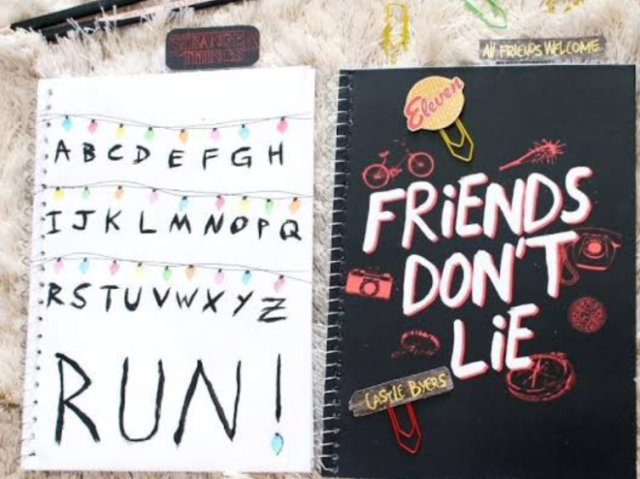 STRANGER
THINGS
ABCDEFGH
IJKLMNOPQ
RSTUVWXYZ
RUN!
All FRiENDS WELCOME
Eleven
FRiENDS
DON'T
LiE
CASTLE BYERS